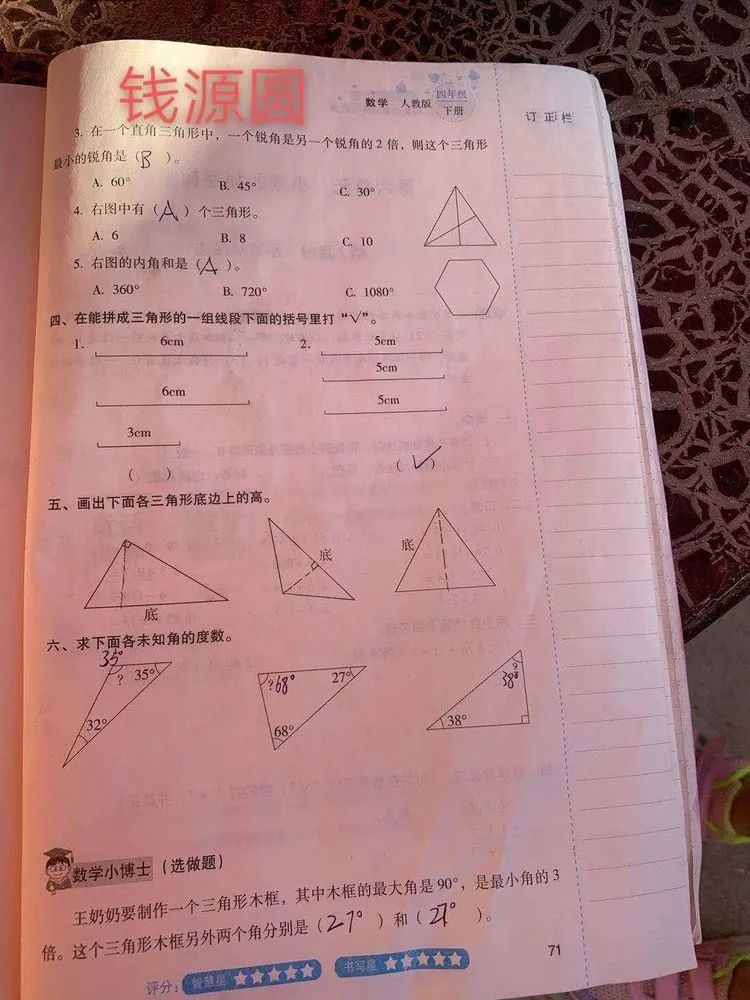 钱源圆
数学 人教版 四年级 下册
订正栏
3. 在一个直角三角形中，一个锐角是另一个锐角的2倍，则这个三角形
最小的锐角是（B）。
A. 60° B. 45° C. 30°
4. 右图中有（A）个三角形。
A. 6 B. 8 C. 10
5. 右图的内角和是（A）。
A. 360° B. 720° C. 1080°
四、在能拼成三角形的一组线段下面的括号里打“√”。
1. 6cm 2. 5cm
5cm
6cm 5cm
3cm
（ ） （✓）
五、画出下面各三角形底边上的高。
底 底 底
六、求下面各未知角的度数。
35°
? 35° ?68° 27° ? 38°
32° 68° 38°
数学小博士（选做题）
王奶奶要制作一个三角形木框，其中木框的最大角是90°，是最小角的3
倍。这个三角形木框另外两个角分别是（27°）和（27°）。
71
评分： 智慧星 ★★★★★ 书写星 ★★★★★